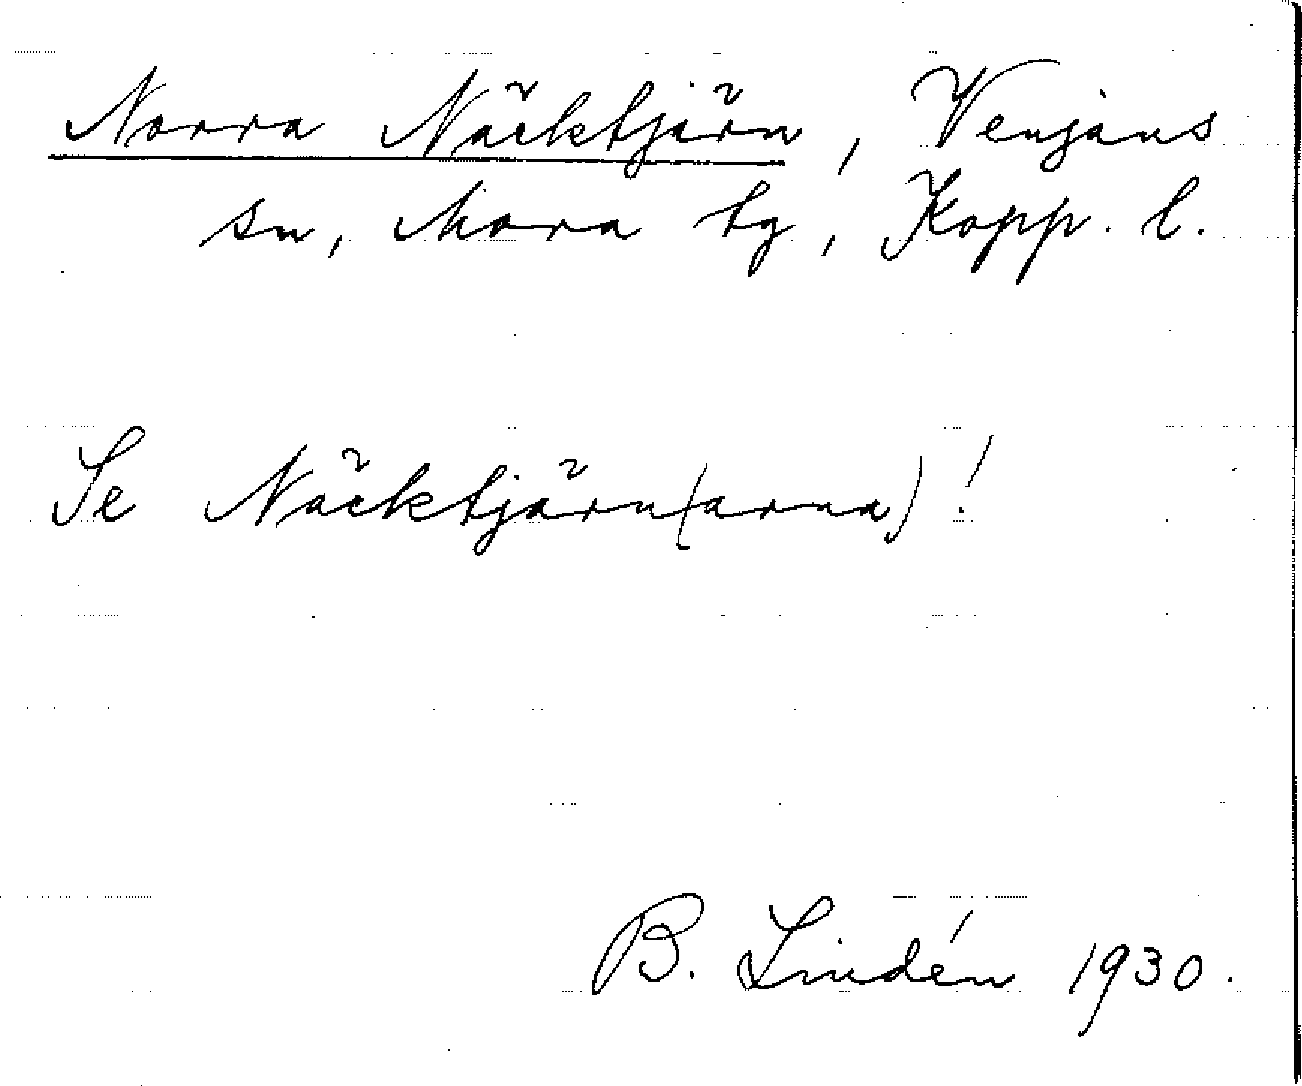 Norra Näcktjärn, Venjans
sn, Mora tg, Kopp. l.
Se Näcktjärn(arna)!
B. Lindén 1930.